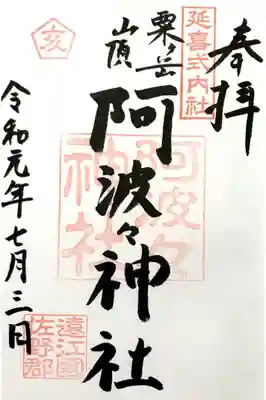 奉拝
延喜式内社
粟ヶ岳
山頂
阿波々神社
阿波々
神社
亥
遠江國
佐野郡
令和元年七月三日